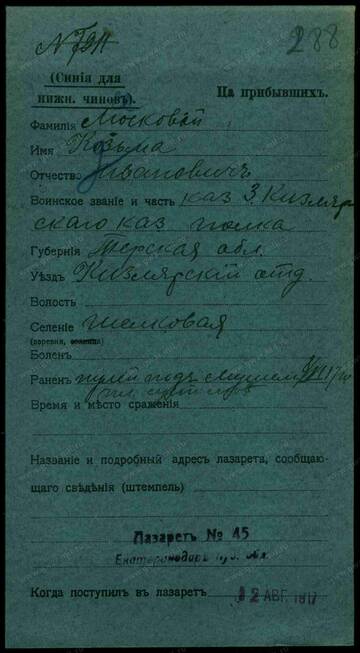 288
(Синія для
нижн. чиновъ).
На прибывшихъ.
Фамилія Московой
Имя Козьма
Отчество Ивановичъ
Воинское званіе и часть каз 3. Кизляр
скаго каз полка
Губернія Терская обл.
Уѣздъ Кизлярскій отд.
Волость
Селеніе Шелковая
(деревня, станица)
Боленъ
Раненъ пулей подъ
Время и мѣсто сраженія
Названіе и подробный адресъ лазарета, сообщаю-
щаго свѣдѣнія (штемпель)
Лазаретъ № 45
Екатеринодаръ Куб. обл.
Когда поступилъ въ лазаретъ 12 АВГ. 1917